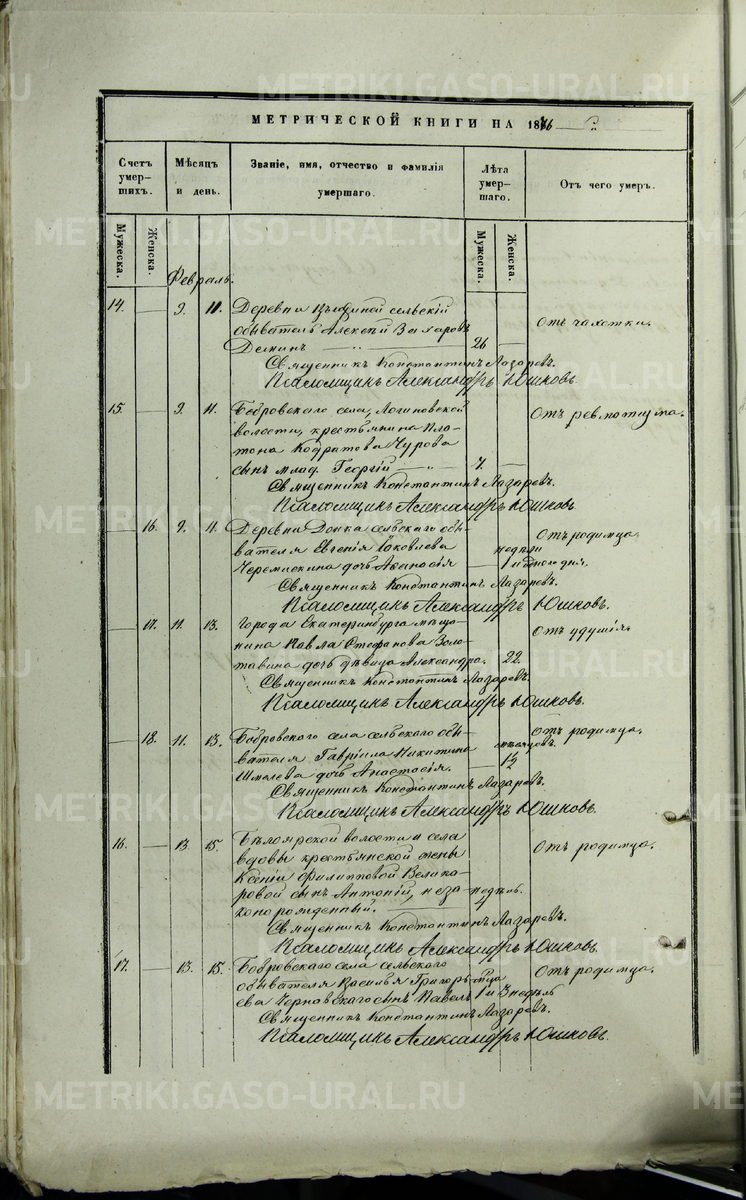 МЕТРИЧЕСКОЙ КНИГИ НА 18
Счетъ умер- шихъ.
Мѣсяцъ и день.
Званіе, имя, отчество и фамилія умершаго.
Лѣта умер- шаго.
Отъ чего умеръ.
Мужеска.
Женска.
Мужеска.
Женска.
Февраль.
14. — 9. 11. Деревни сельскій
обыватель Алексѣй Захаровъ отъ чахотки.
Деминъ „ — 26 —
Священникъ Константинъ Лазаревъ.
Псаломщикъ Александръ Юшковъ.
15. — 9. 11. Бобровскаго села, Логиновской Отъ ревматизма.
волости, крестьянина Пла-
тона Кодратова Чурова
сынъ млад. Георгій — „ — 7. —
Священникъ Константинъ Лазаревъ.
Псаломщикъ Александръ Юшковъ.
— 16. 9. 11. Деревни сельскаго обы- Отъ родимца.
вателя Евгенія Іаковлева недѣли
Черемискина дочь — 1 и
Священникъ Константинъ Лазаревъ.
Псаломщикъ Александръ Юшковъ.
— 17. 11. 13. Города Екатеринбурга мѣща-
нина Павла Стефанова Золо- Отъ удушія.
тавина дочь дѣвица Александра. — 22.
Священникъ Константинъ Лазаревъ.
Псаломщикъ Александръ Юшковъ.
— 18. 11. 13. Бобровскаго села сельскаго обы- Отъ родимца.
вателя Гавріила Никитина мѣсяцовъ.
Шмелева дочь Анастасія. —
Священникъ Константинъ Лазаревъ.
Псаломщикъ Александръ Юшковъ.
16. — 13 15. Бѣлоярской волости и села Отъ родимца.
вдовы крестьянской жены
Ксеніи Филипповой
сынъ Антоній, неза-
конорожденный.
Священникъ Константинъ Лазаревъ.
Псаломщикъ Александръ Юшковъ.
17. — 13. 15. Бобровскаго села сельскаго Отъ родимца.
обывателя Василья Григорь-
ева Чернавскаго сынъ Павелъ 1 и 3 недѣль
Священникъ Константинъ Лазаревъ.
Псаломщикъ Александръ Юшковъ.
METRIKI.GASO-URAL.RU